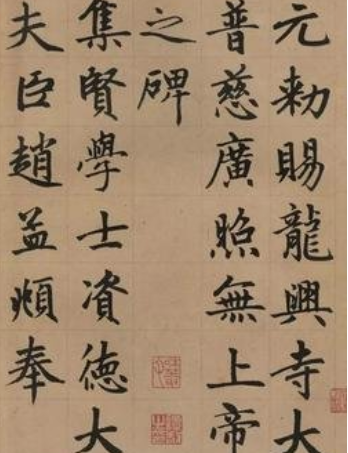 元敕賜龍興寺大
普慈廣照無上帝
之碑
集賢學士資德大
夫臣趙孟頫奉